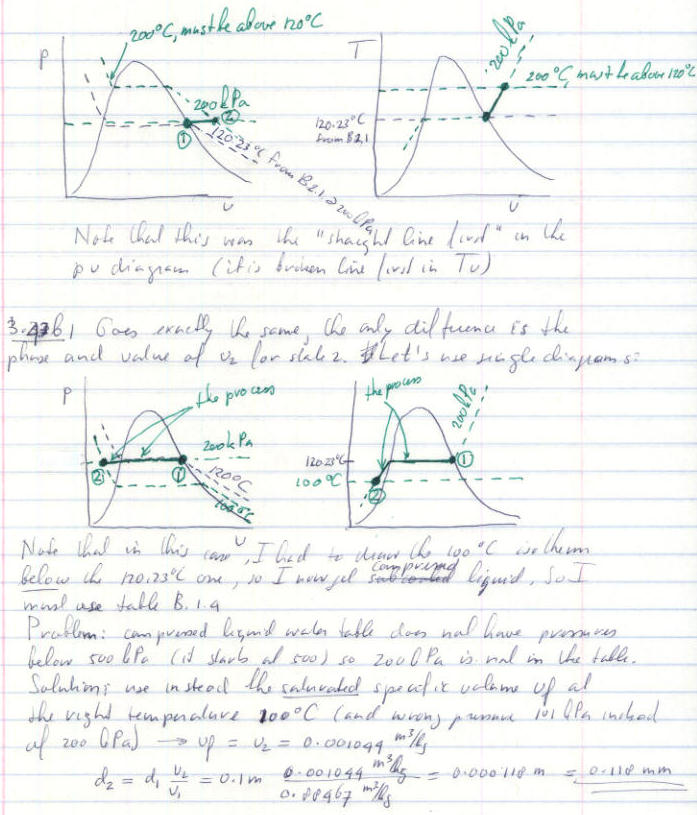 200°C, must be above 120°C
P
200 kPa
①
②
120.23°C from B2.1 @ 200 kPa
v
T
200 kPa
200°C, must be above 120°C
120.23°C
from B2.1
v
Note that this was the "straight line first" in the
pv diagram (it is broken line first in Tv)
b) Goes exactly the same, the only difference is the
phase and value of v2 for state 2. Let's use single diagrams:
P
the process
200 kPa
②
①
120°C
100°C
v
the process
200 kPa
120.23°C
100°C
①
②
Note that in this case, I had to draw the 100°C isotherm
below the 120.23°C one, so I now get compressed liquid. So I
must use table B.1.4
Problem: compressed liquid water table does not have pressures
below 500 kPa (it starts at 500) so 200 kPa is not in the table.
Solution: use instead the saturated specific volume vf at
the right temperature 100°C (and wrong pressure 101 kPa instead
of 200 kPa) → vf = v2 = 0.001044 m³/kg
d2 = d1 v2/v1 = 0.1 m 0.001044 m³/kg / 0.88467 m³/kg = 0.000118 m = 0.118 mm